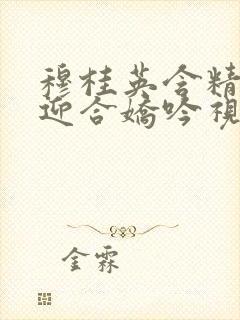 穆桂英含精
迎合娇吟视
金霖